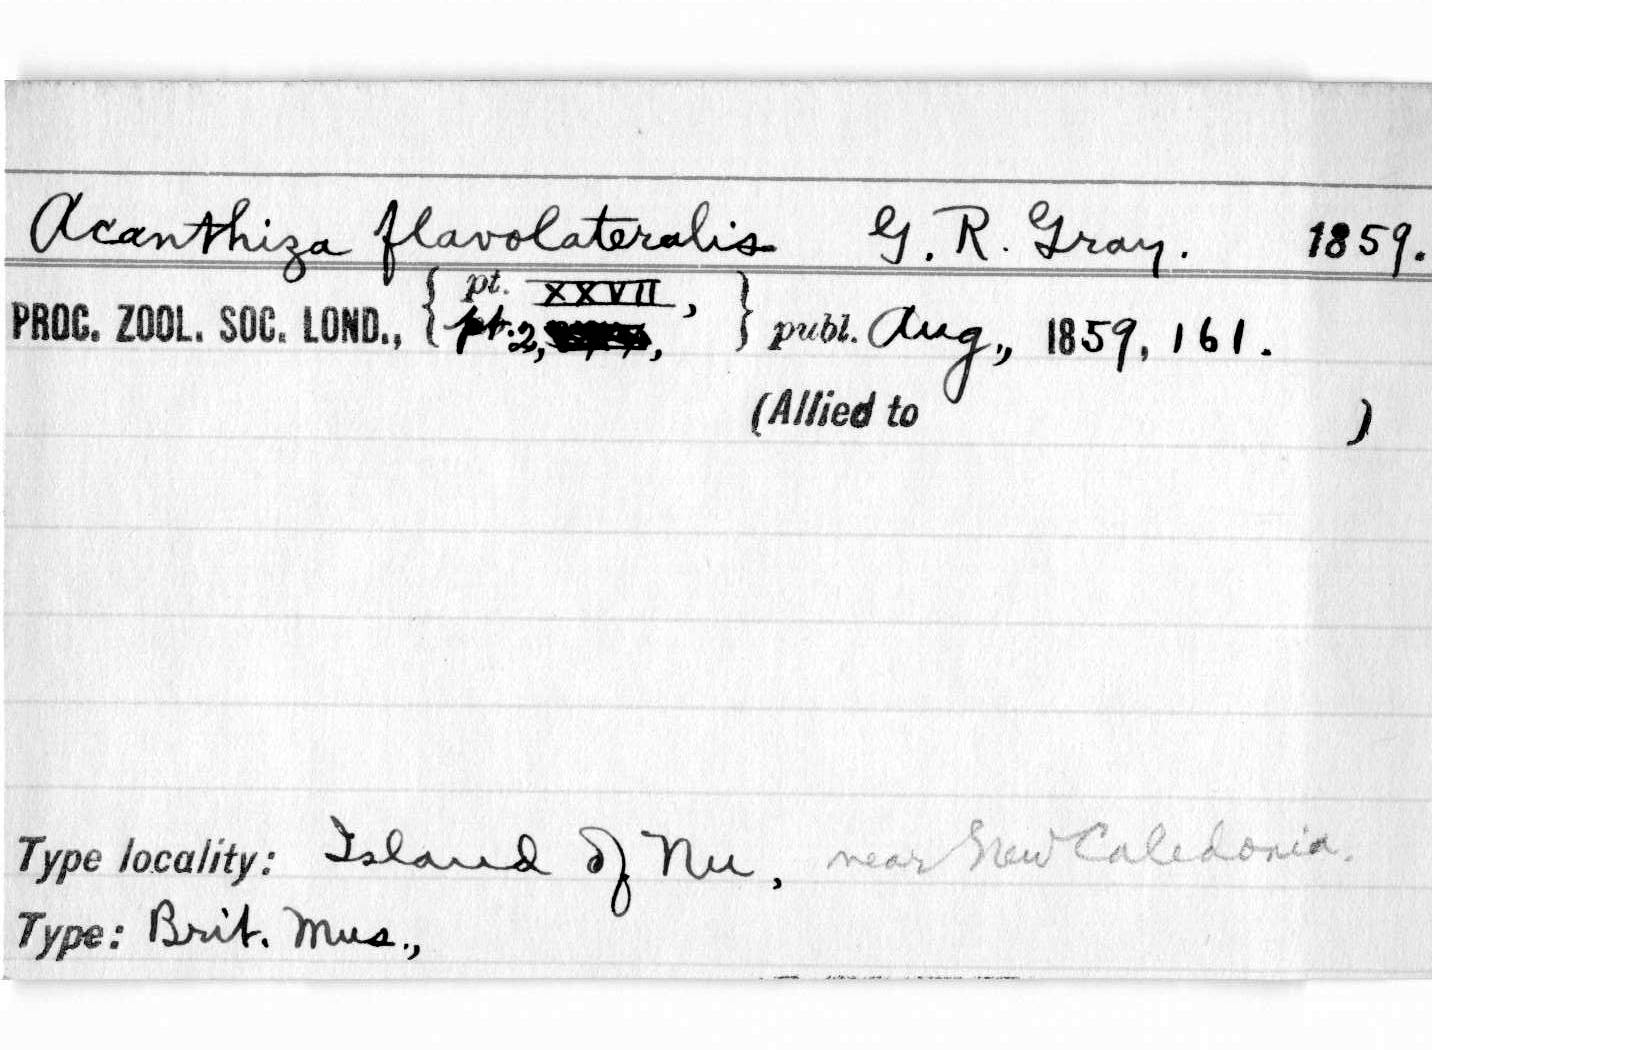 Acanthiza flavolateralis G. R. Gray. 1859.
pt. XXVII,
PROC. ZOOL. SOC. LOND., { pt. 2, , } publ. Aug., 1859, 161.
(Allied to )
Type locality: Island of Nu, near New Caledonia.
Type: Brit. Mus.,